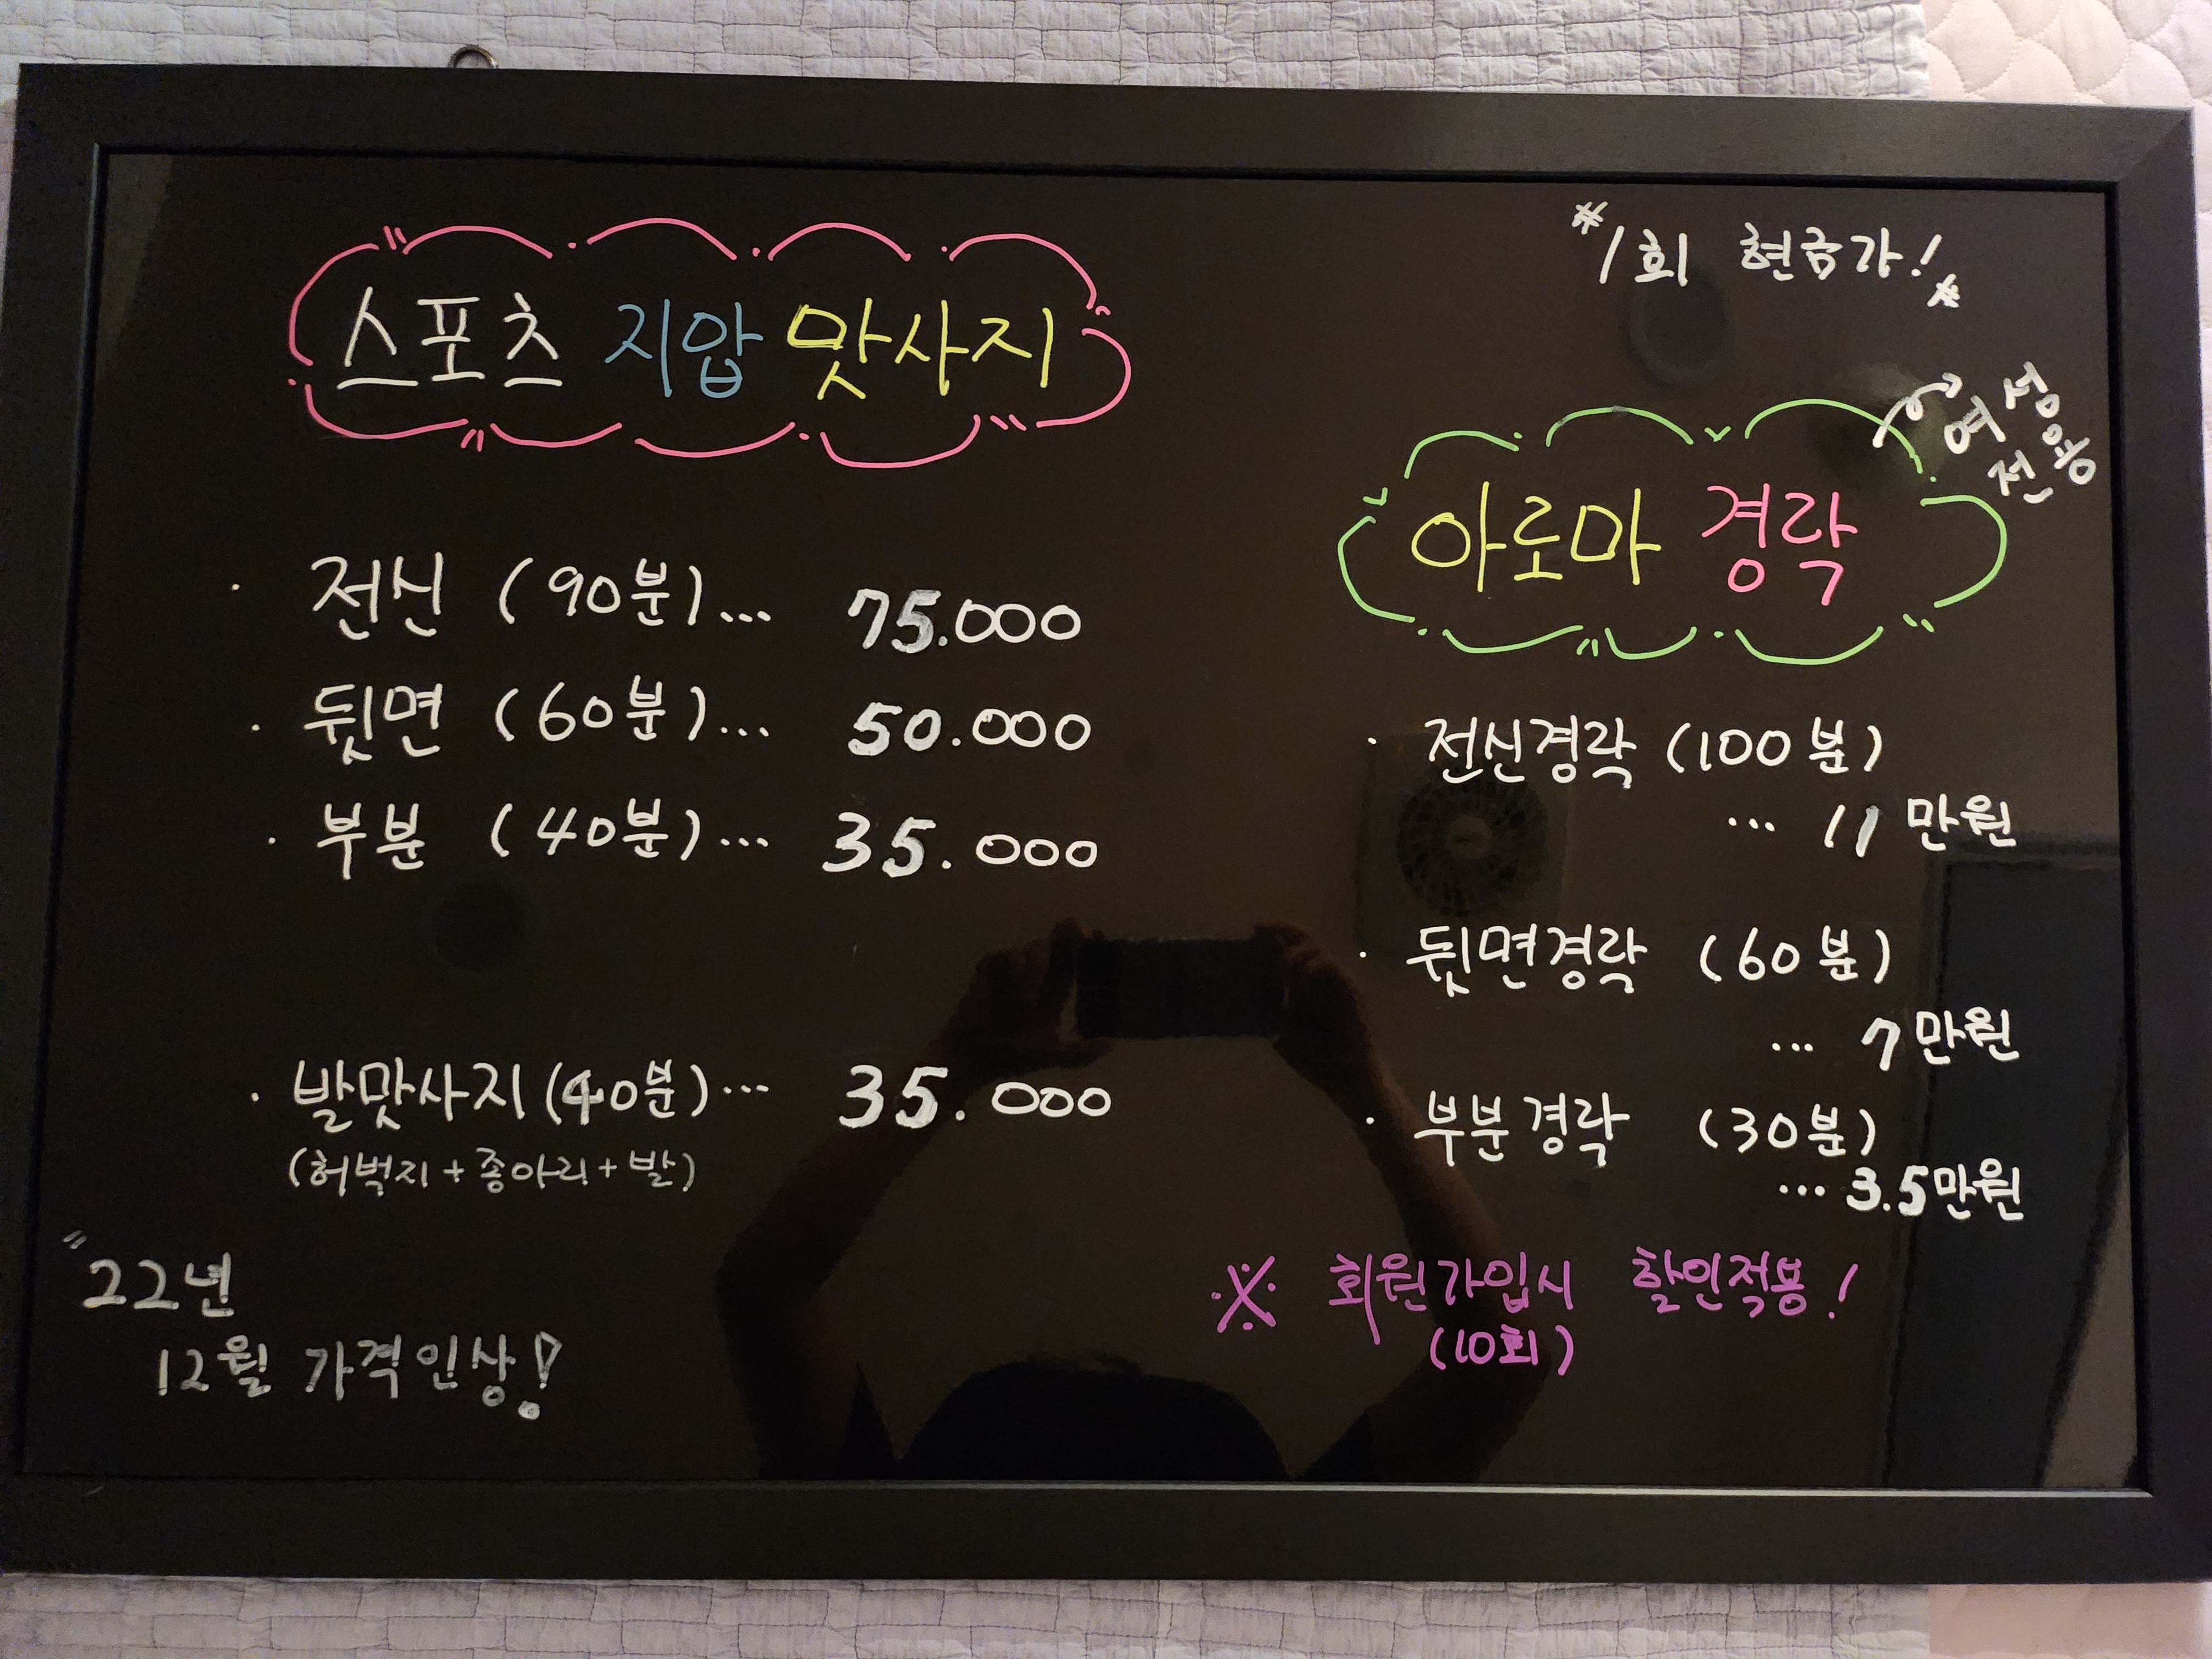 스포츠 지압 맛사지
· 전신 (90분)... 75.000
· 뒷면 (60분)... 50.000
· 부분 (40분)... 35.000
· 발맛사지 (40분)... 35.000
(허벅지+종아리+발)
"22년
12월 가격인상!
*1회 현금가!*
여성
전용
아로마 경락
· 전신경락 (100분)
... 11만원
· 뒷면경락 (60분)
... 7만원
· 부분경락 (30분)
... 3.5만원
※ 회원가입시 할인적용!
(10회)